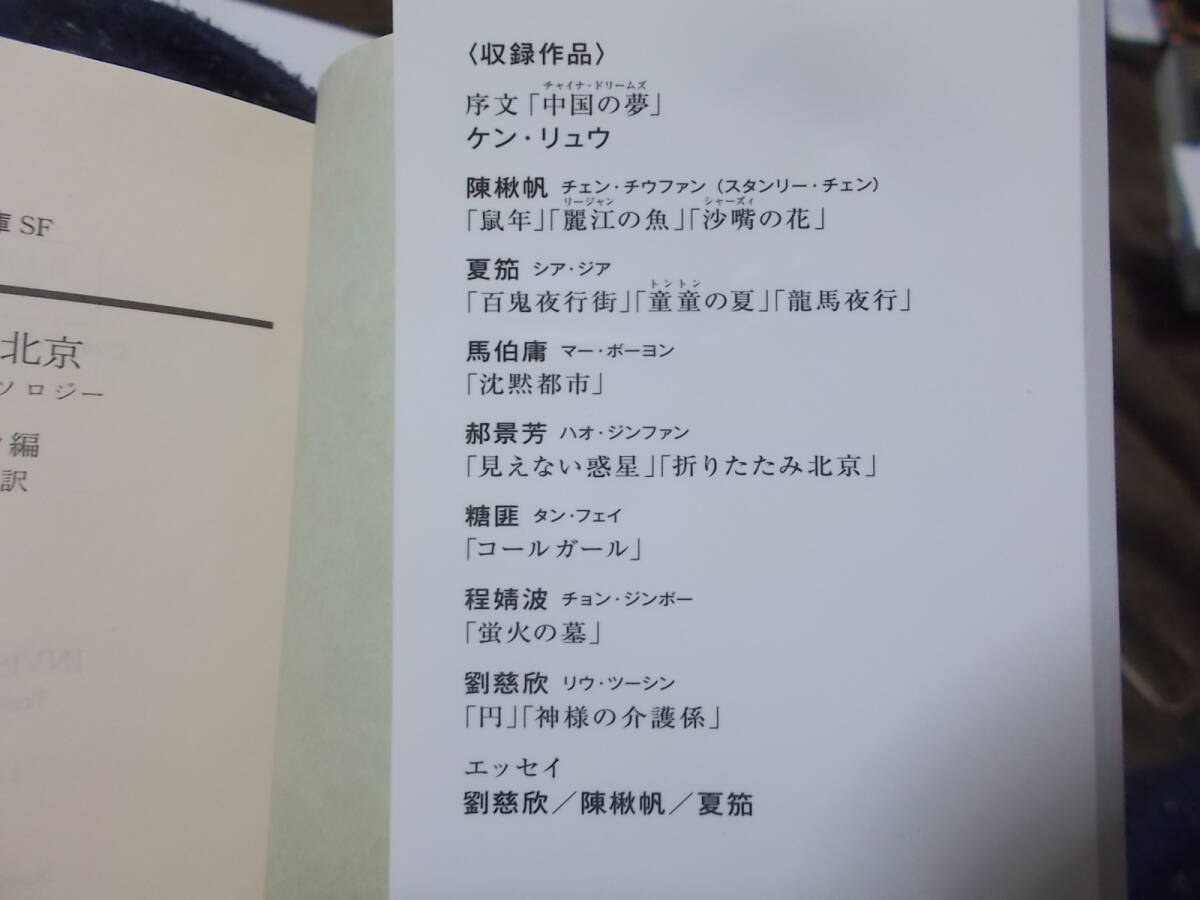 庫 SF
北京
ソロジー
編
訳
〈収録作品〉
チャイナ・ドリームズ
序文「中国の夢」
ケン・リュウ
陳楸帆 チェン・チウファン（スタンリー・チェン）
リージャン シャーズィ
「鼠年」「麗江の魚」「沙嘴の花」
夏笳 シア・ジア
トントン
「百鬼夜行街」「童童の夏」「龍馬夜行」
馬伯庸 マー・ボーヨン
「沈黙都市」
郝景芳 ハオ・ジンファン
「見えない惑星」「折りたたみ北京」
糖匪 タン・フェイ
「コールガール」
程婧波 チョン・ジンボー
「蛍火の墓」
劉慈欣 リウ・ツーシン
「円」「神様の介護係」
エッセイ
劉慈欣／陳楸帆／夏笳